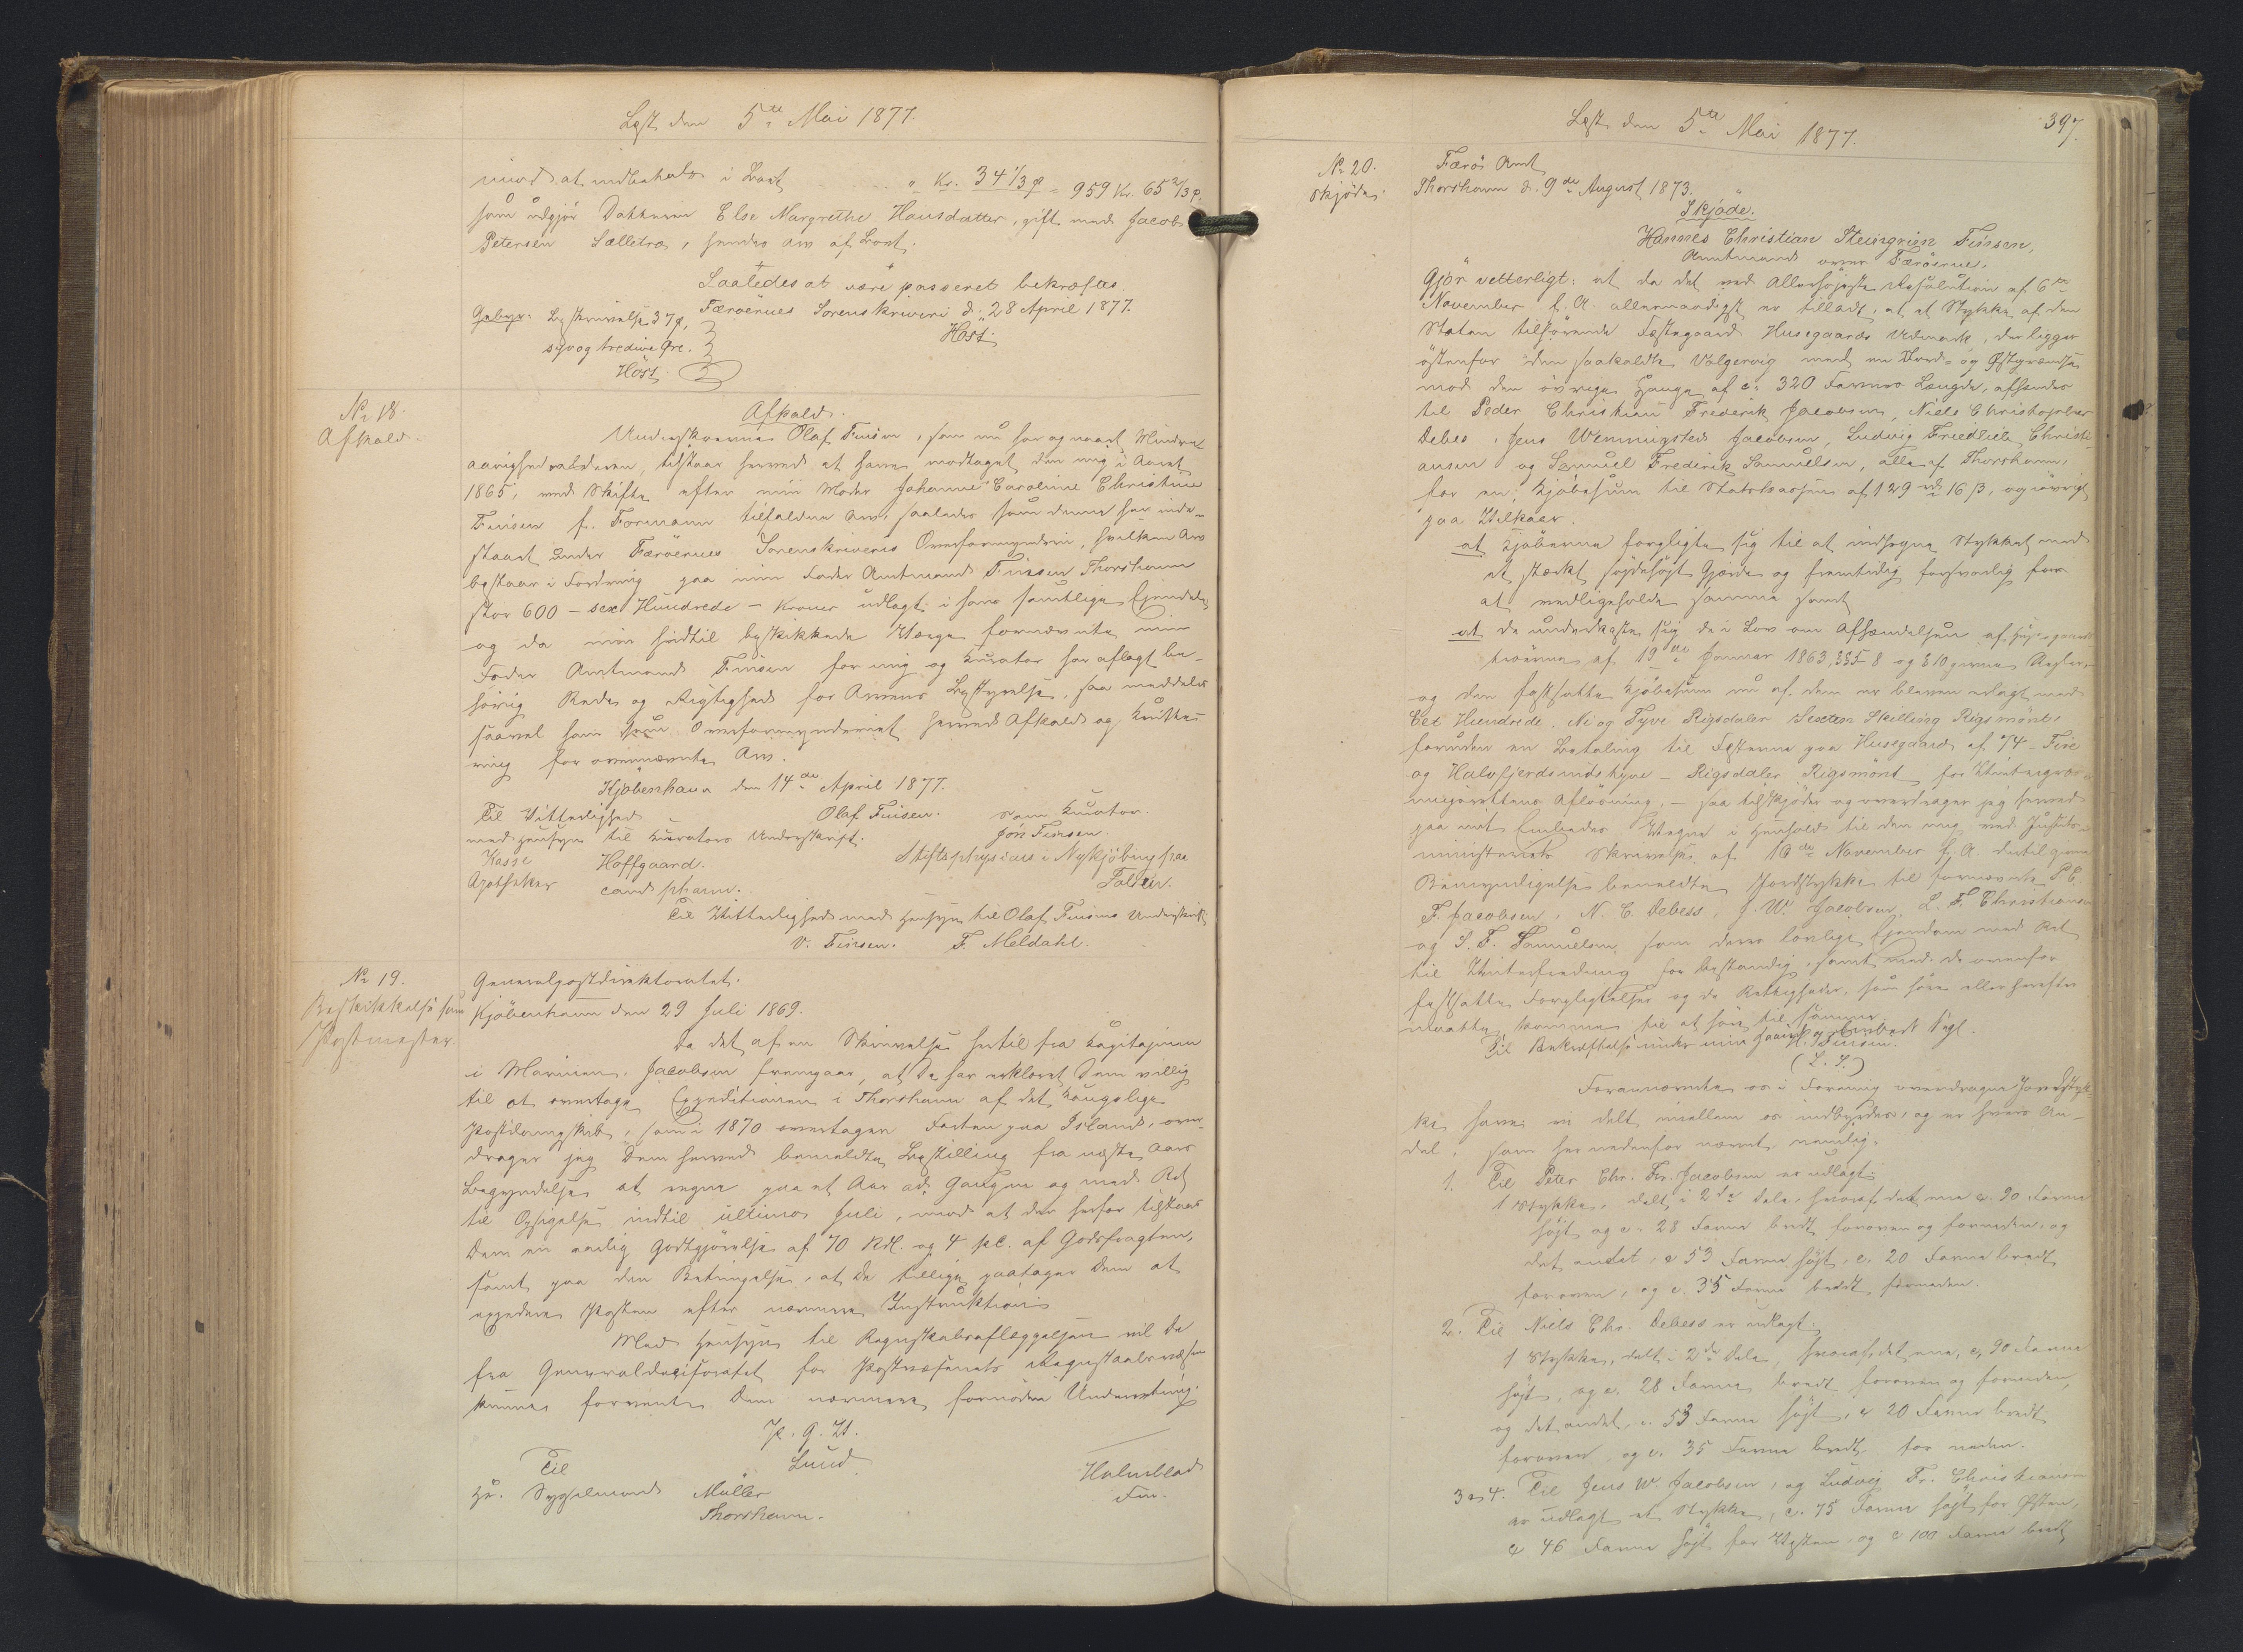 Læst den 5te Mai 1877.
imod at indbetale i Boet " Kr. 34 1/3 Ø = 959 Kr. 65 2/3 Ø.
som udgjør Datteren Else Margrethe Hansdatter, gift med Jacob
Petersen Sælletræ, hendes Arv af Boet.
Saaledes at være passeret bekræftes.
Færöernes Sorenskriveri d. 28 April 1877.
Höst.
Gebyr: Beskrivelse 37 Ø,
syv og tredive Øre.
Höst.
No 18.
Afkald.
Afkald.
Underskrevne Olaf Finsen, som nu har opnaaet Mindre-
aarighedsalderen, tilstaar herved at have modtaget den mig i Aaret
1865, ved Skifte efter min Moder Johanne Caroline Christine
Finsen f. Formann tilfaldne Arv, saaledes som denne har inde-
staaet under Færöernes Sorenskriveris Overformynderi, hvilken Arv
bestaar i Fordring paa min Fader Amtmand Finsen Thorshavn
stor 600 – sex Hundrede – Kroner udlagt i hans samtlige Ejendele,
og da min hidtil beskikkede Værge fornævnte min
Fader Amtmand Finsen for mig og Kurator har aflagt be-
hørig Rede og Rigtighed for Arvens Bestyrelse, saa meddeles
saavel ham som Overformynderiet herved Afkald og Kvitte-
ring for ovennævnte Arv.
Kjøbenhavn den 14de April 1877.
Til Vitterlighed Olaf Finsen. som Kurator.
med Hensyn til Kurators Underskrift: Jón Finsen.
Kasse Hoffgaard. Stiftsphysicus i Nykjöbing paa
Apotheker cand. pharm. Falster.
Til Vitterlighed med Hensyn til Olaf Finsens Underskrift:
V. Finsen. F. Meldahl.
No 19.
Beskikkelse som
Postmester.
Generalpostdirektoratet.
Kjöbenhavn den 29 Juli 1869.
Da det af en Skrivelse hertil fra Kapitajnen
i Marinen Jacobsen fremgaar, at De har erklæret Dem villig
til at overtage Expeditionen i Thorshavn af det kongelige
Postdampskib, som i 1870 overtager Farten paa Island, over-
drager jeg Dem herved bemeldte Bestilling fra næste Aars
Begyndelse at regne paa et Aar ad Gangen og med Ret
til Opsigelse indtil ultimo Juli, imod at der herfor tilstaaes
Dem en aarlig Godtgjörelse af 70 Rdl. og 4 pC. af Godsfragten,
samt paa den Betingelse, at De tillige paatager Dem at
expedere Posten efter nærmere Instruktion.
Med Hensyn til Regnskabsaflæggelsen vil De
fra Generaldecisoratet for Postvæsenets Regnskabsvæsen
kunne forvente Dem nærmere fornøden Underretning.
P. G. V.
Lund
Til
Hr. Sysselmand Müller
Thorshavn.
Holmblad
Fm.
Læst den 5te Mai 1877.
397.
No 20.
Skjöde.
Færö Amt
Thorshavn d. 9de August 1873.
Skjøde.
Hannes Christian Steingrim Finsen,
Amtmand over Færöerne,
Gjör vitterligt: at da det ved allerhöjeste Resolution af 6te
November f. A. allernaadigst er tilladt, at et Stykke af den
Staten tilhørende Fæstegaard Husegaards Udmark, der ligger
östenfor den saakaldte Valgervig med en Nord- og Østgrændse
mod den øvrige Hauge af c. 320 Favnes Længde, afhændes
til Peder Christian Frederik Jacobsen, Niels Christopher
Debes, Jens Wenningsted Jacobsen, Ludvig Friedlieb Christi-
ansen og Samuel Frederik Samuelsen, alle af Thorshavn,
for en Kjøbesum til Statskassen af 129 rd 16 ß, og iövrigt
paa Vilkaar:
at Kjöberne forpligte sig til at indhegne Stykket med
et stærkt höjt Gjærde og fremtidig forsvarlig
at vedligeholde samme samt
at de underkaste sig de i Lov om Afhændelsen af
af 19de Januar 1863, §§ 5–8 og § 10 givne Regler,
og den fastsatte Kjöbesum nu af dem er bleven erlagt med
Eet Hundrede Ni og Tyve Rigsdaler Sexten Skilling Rigsmönt,
foruden en Betaling til Fæsteren paa Husegaard af 74 – Fire
og Halvfjerdsindstyve – Rigsdaler Rigsmönt for Vintergræs-
ningsrettens Aflösning, – saa tilskjöder og overdrager jeg herved
paa mit Embedes Vegne i Henhold til den mig ved Justits-
ministeriets Skrivelse af 16de November f. A. dertil givne
Bemyndigelse bemeldte Jordstykke til fornævnte P. C.
F. Jacobsen, N. C. Debess, J. W. Jacobsen, L. F. Christiansen
og S. F. Samuelsen, som deres lovlige Ejendom med Ret
til Vinterfredning for bestandig, samt med de ovenfor
fastsatte Forpligtelser og de Rettigheder, som høre eller herefter
maatte komme til at höre til samme.
Til Bekræftelse under min Haand og Embeds Segl.
H. Finsen.
(L. S.)
Forannævnte os i Forening overdragne Jordstyk-
ke have vi delt imellem os indbyrdes, og er hvers An-
del, som her nedenfor nævnt nemlig:
1. Til Peter Chr. Fr. Jacobsen er udlagt:
1 Stykke, delt i 2de Dele, hvoraf det ene c. 90 Favne
höjt og c. 28 Favne bredt foroven og forneden, og
det andet, c 53 Favne höjt, c. 20 Favne bredt
foroven, og c. 35 Favne bredt forneden.
2. Til Niels Chr. Debess er udlagt:
1 Stykke, delt i 2de Dele, hvoraf det ene, c. 90 Favne
höjt, og c. 28 Favne bredt foroven og forneden,
og det andet, c. 53 Favne höjt, c 20 Favne bredt
foroven, og c. 35 Favne bredt for neden.
3 og 4. Til Jens W. Jacobsen, og Ludvig Fr. Christiansen
er udlagt et Stykke, c. 75 Favne höjt for Østen,
c. 46 Favne höjt for Vesten, og c 100 Favne bredt